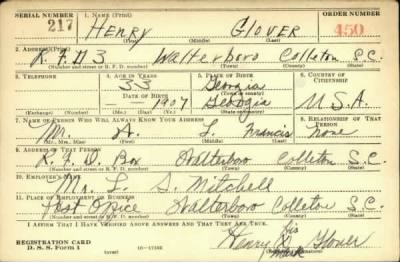 SERIAL NUMBER 1. NAME (Print) ORDER NUMBER
217 HENRY GLOVER 450
(First) (Middle) (Last)
2. ADDRESS (Print)
R.F.D 3 Walterboro Colleton S.C.
(Number and street or R. F. D. number) (Town) (County) (State)
3. TELEPHONE 4. AGE IN YEARS 5. PLACE OF BIRTH 6. COUNTRY OF CITIZENSHIP
33 Georgia
DATE OF BIRTH (Town or county)
1907 Georgia U.S.A.
(Exchange) (Number) (Mo.) (Day) (Yr.) (State or country)
7. NAME OF PERSON WHO WILL ALWAYS KNOW YOUR ADDRESS 8. RELATIONSHIP OF THAT PERSON
Mr. A. Francis None
(Mr., Mrs., Miss) (First) (Middle) (Last)
9. ADDRESS OF THAT PERSON
R.F.D. Box Walterboro Colleton S.C.
(Number and street or R. F. D. number) (Town) (County) (State)
10. EMPLOYER'S NAME
Mr. S. Mitchell
11. PLACE OF EMPLOYMENT OR BUSINESS
Post Office Walterboro Colleton S.C.
(Number and street or R. F. D. number) (Town) (County) (State)
I AFFIRM THAT I HAVE VERIFIED ABOVE ANSWERS AND THAT THEY ARE TRUE.
his
REGISTRATION CARD Henry X Glover
D. S. S. Form 1 mark